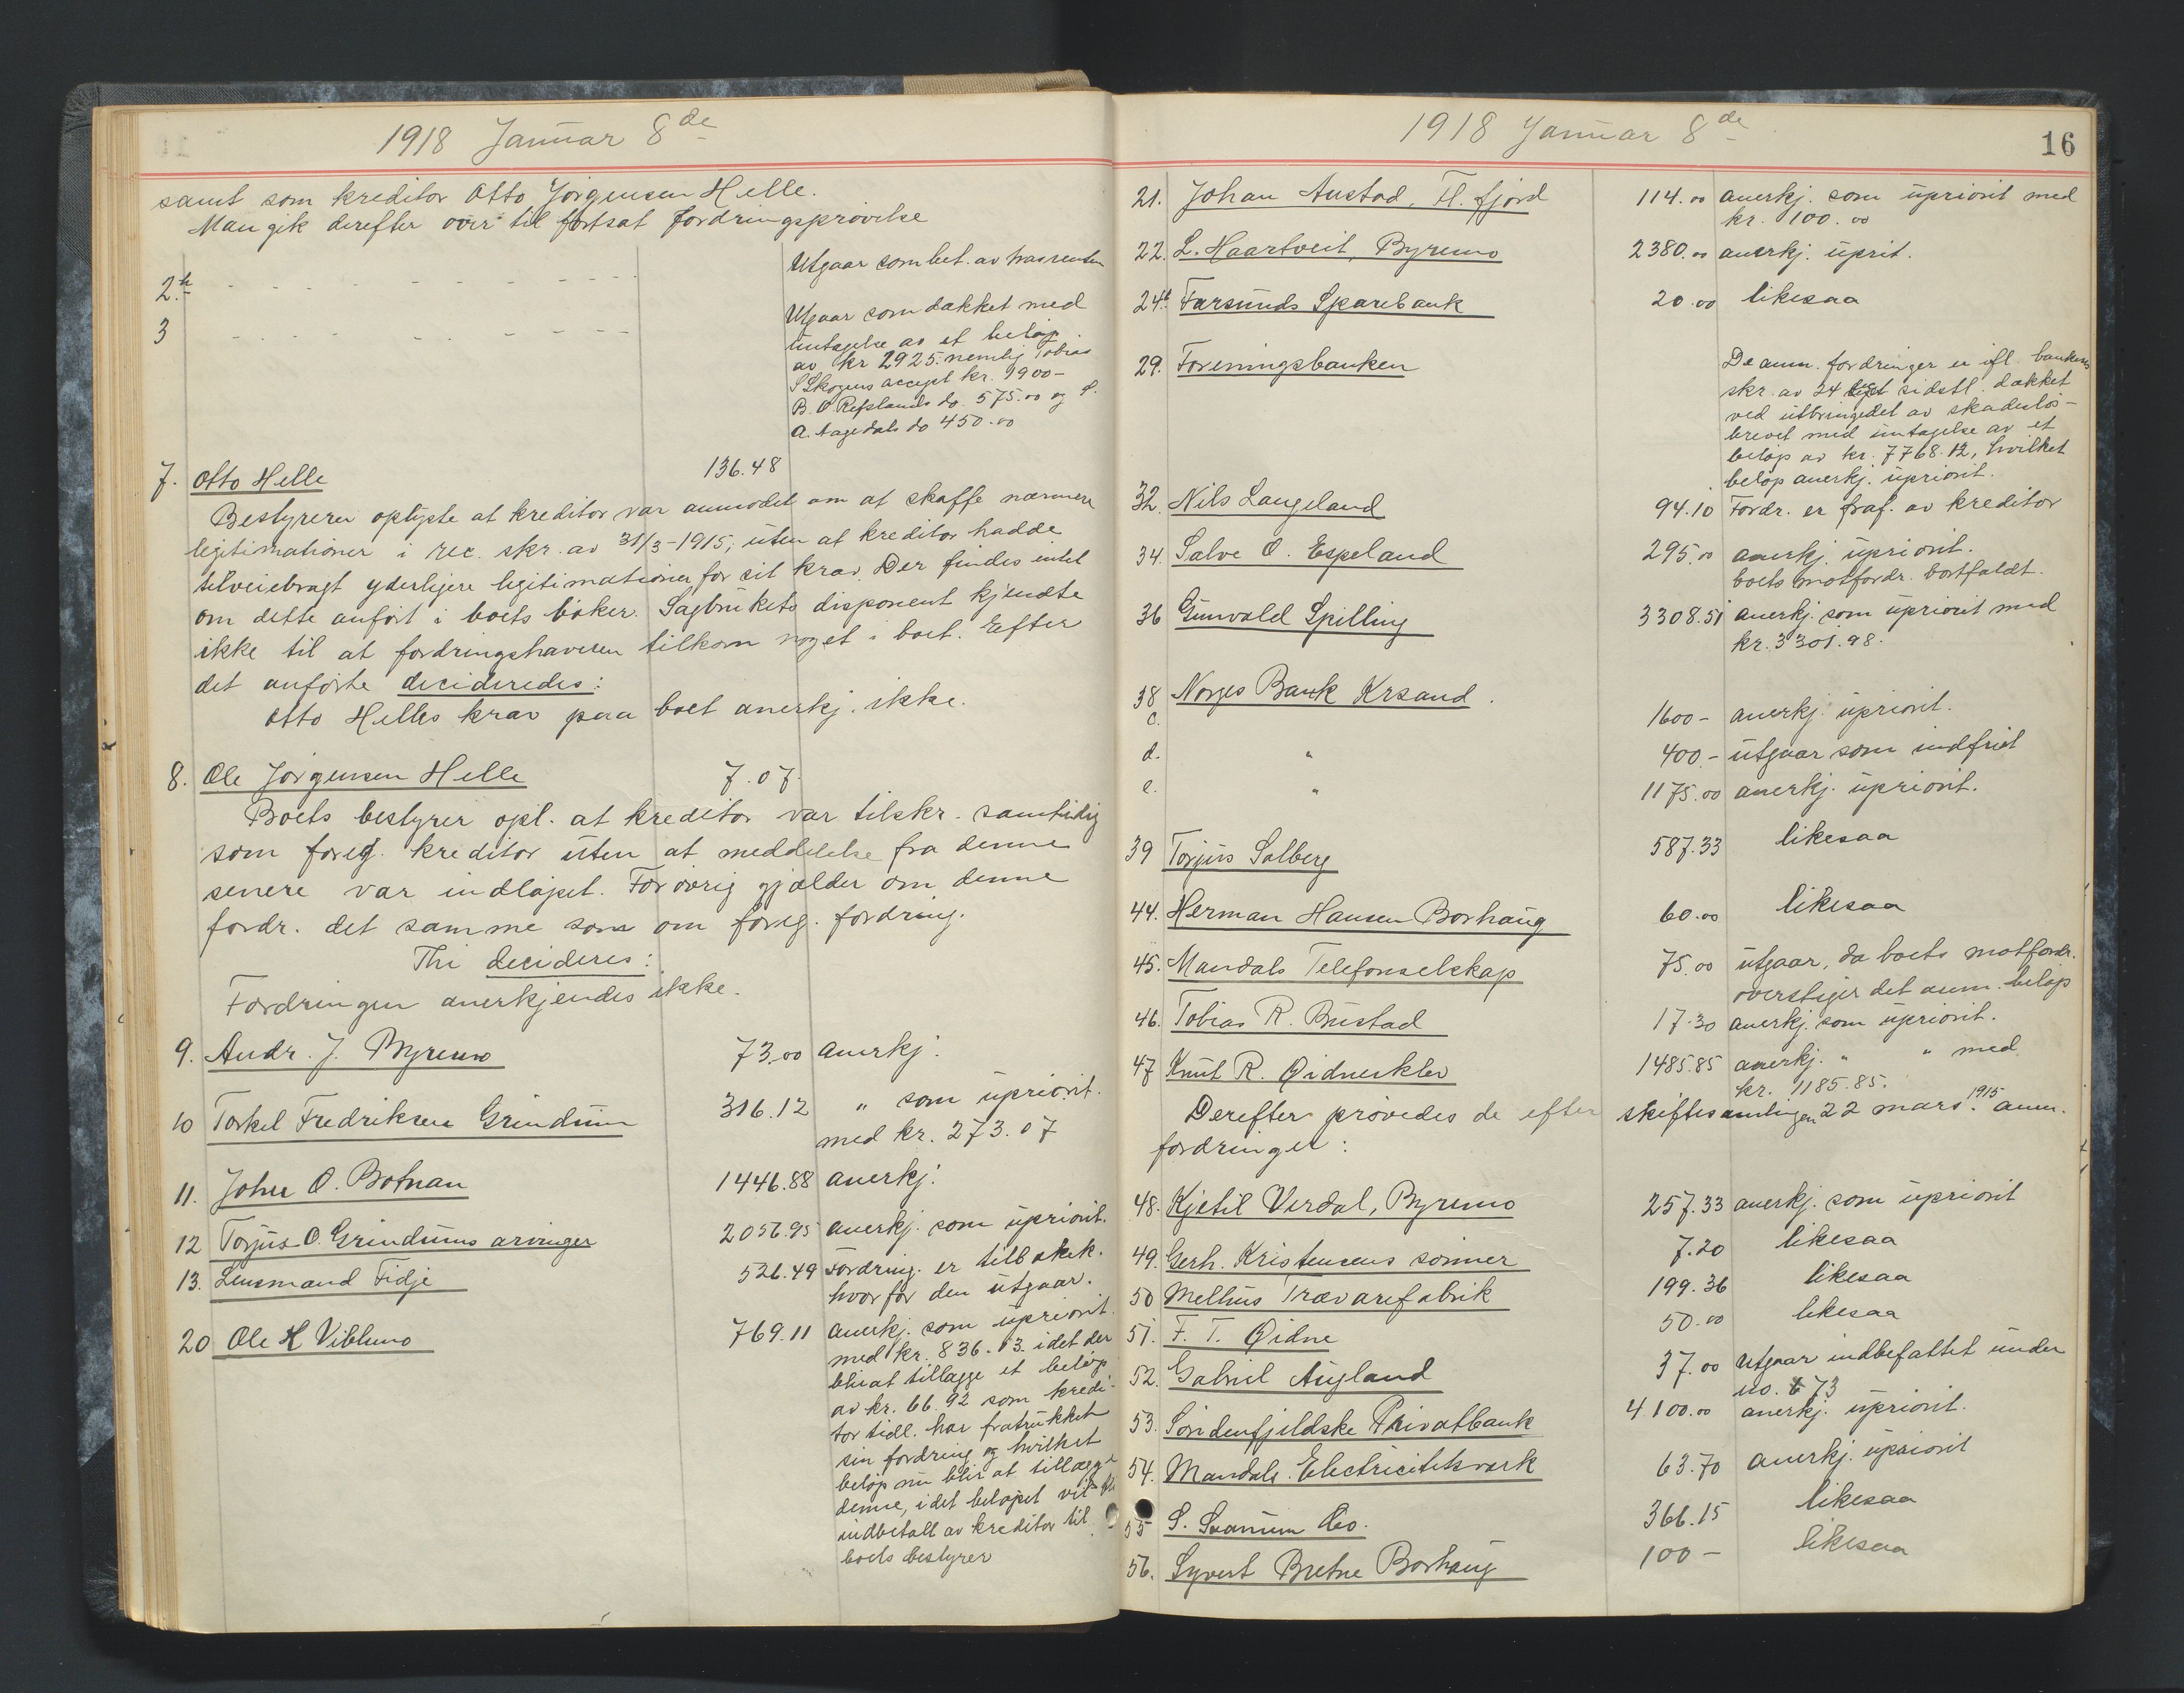 1918 Januar 8de
samt som kreditor Otto Jørgensen Helle.
Man gik derefter over til fortsat fordringsprøvelse
2.
Utgaar som bet. av
3
Utgaar som dækket med
undtagelse av et beløp
av kr 2925. nemlig Tobias
S Skogens accept kr. 1900-
B. O Refslands do. 575.00 og S.
A. Aagedals do 450.00
7. Otto Helle 136.48
Bestyreren oplyste at kreditor var anmodet om at skaffe nærmere
legitimationer i rec. skr. av 31/3-1915, uten at kreditor hadde
tilveiebragt yderligere legitimationer for sit krav. Der findes intet
om dette anført i boets bøker. Sagbrukets disponent kjendte
ikke til at fordringshaveren tilkom noget i boet. Efter
det anførte decideredes:
Otto Helles krav paa boet anerkj. ikke.
8. Ole Jørgensen Helle 7.07.
Boets bestyrer opl. at kreditor var tilskr. samtidig
som foreg. kreditor uten at meddelelse fra denne
senere var indløpet. Forøvrig gjælder om denne
fordr. det samme som om foreg. fordring.
Thi decideres:
Fordringen anerkjendes ikke.
9. Andr. J. Byremo 73.00 anerkj.
10 Torkel Fredriksen Grindum 316.12 " som upriorit.
med kr. 273.07
11. John O. Botnan 1446.88 anerkj.
12 Torjus O. Grindums arvinger 2056.95 anerkj. som upriorit.
13. Lensmand Fidje 526.49 Fordring. er tilbakek.
hvorfor den utgaar.
20 Ole K Vibluno 769.11 anerkj. som upriorit
med kr. 836.03. idet der
blir at tillægge et beløp
av kr. 66.92 som kredi-
tor tidl. har fratrukket
sin fordring og hvilket
beløp nu blir at tillægge
denne, idet beløpet vil bli
indbetalt av kreditor til
boets bestyrer
1918 Januar 8de
16
21. Johan Austad, Fl. fjord 114.00 anerkj. som upriorit med
kr. 100.00
22. L. Haartveit, Byremo 2380.00 anerkj. uprit.
24b Farsunds Sparebank 20.00 likesaa
29. Foreningsbanken
De anm. fordringer er ifl. bankens
skr. av 24 sept sidstl. dækket
ved utbringedet av skadesløs-
brevet med undtagelse av et
beløp av kr. 7768.12, hvilket
beløp anerkj. upriorit.
32. Nils Langeland 94.10 Fordr. er fraf. av kreditor
34 Salve O. Espeland 295.00 anerkj. upriorit.
boets motfordr. bortfaldt.
36 Gunvald Spilling 3308.51 anerkj. som upriorit med
kr. 3301.98.
38 Norges Bank Krsand.
c. 1600- anerkj. upriorit.
d. " 400.- utgaar som indfriet
e. " 1175.00 anerkj. upriorit.
39 Torjus Solberg 587.33 likesaa
44. Herman Hansen Borhaug 60.00 likesaa
45. Mandals Telefonselskap 75.00 utgaar, da boets motfordr.
overstiger det anm. beløp
46. Tobias R. Bustad 17.30 anerkj. som upriorit.
47 Knut R. Øidneklev 1485.85 anerkj. " " med
kr. 1185.85.
Derefter prøvedes de efter skiftesamlingen 22 mars 1915 anm.
fordringer:
48. Kjetil Verdal, Byremo 257.33 anerkj. som upriorit
49. Gerh. Kristensens sønner 7.20 likesaa
50 Melhus Trævarefabrik 199.36 likesaa
51. F. T. Øidne 50.00 likesaa
52. Gabriel Augland 37.00 Utgaar indbefattet under
no. 73
53. Søndenfjeldske Privatbank 4100.00 anerkj. upriorit.
54. Mandals Electricitetsverk 63.70 anerkj. upriorit
55 S. Svanum & Co. 366.15 likesaa
56. Syvert Bretne Borhaug 100- likesaa